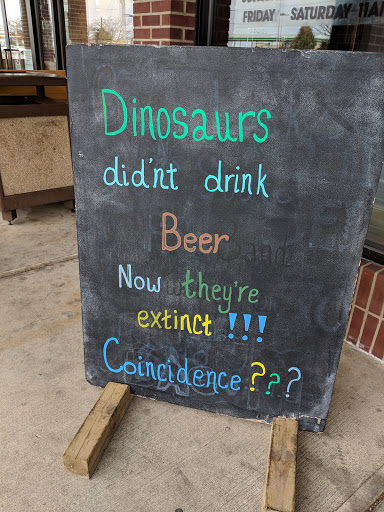 FRIDAY - SATURDAY 11AM
Dinosaurs
did'nt drink
Beer
Now they're
extinct !!!
Coincidence ???